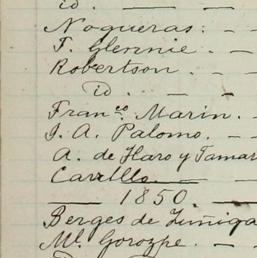 id. — — —
Nogueras. — —
F. Glennie. — —
Robertson. — —
id — —
Fran.co Marin. —
J. A. Palomo. — —
A. de Haro y Tamar
Carrillo —
— 1850. —
Berges de Zuñiga
Ml. Gorozpe. — —